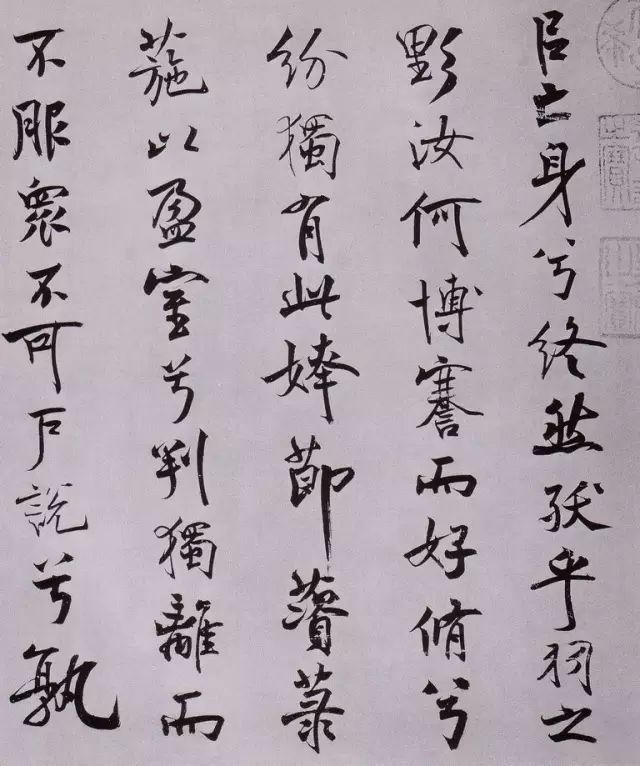 㠯亡身兮終然殀乎羽之
野汝何博謇而好脩兮
紛獨有此姱莭薋菉
葹以盈室兮判獨離而
不服眾不可戶說兮孰